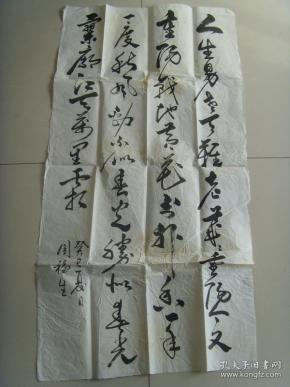 人生易老天難老歲歲重陽今又
重陽戰地黄花分外香一年
一度秋風勁不似春光勝似春光
寥廓江天萬里霜
癸巳夏日
周福生
孔夫子旧书网